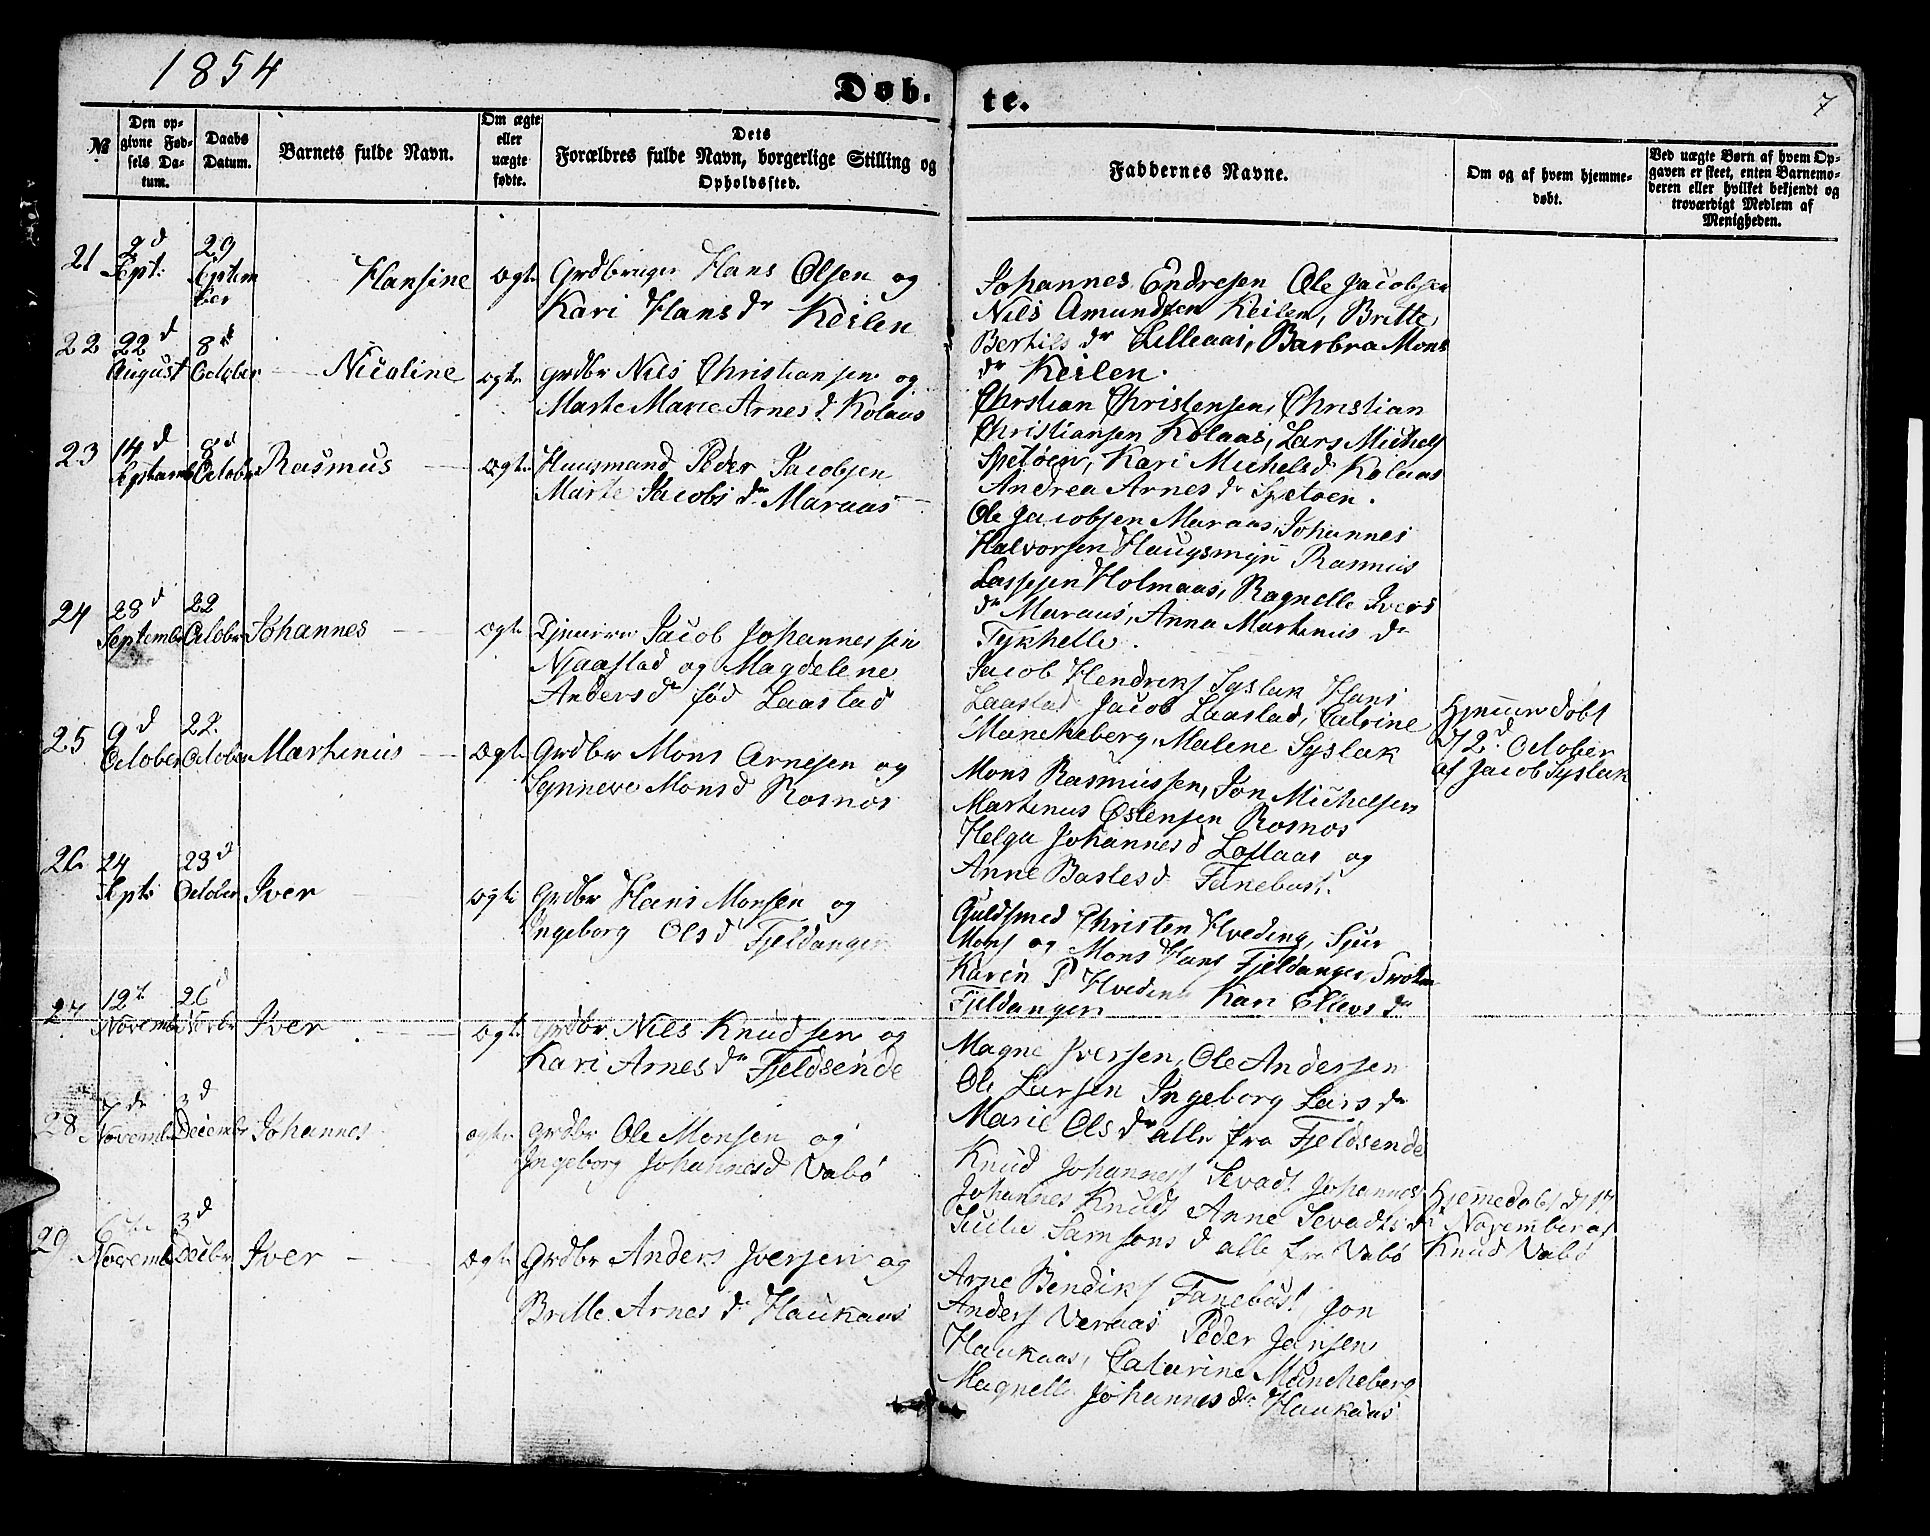 1854
Døb-
te.
7
№
Den op-
givne Fød-
sels Da-
tum.
Daabs
Datum.
Barnets fulde Navn.
Om ægte
eller
uægte
fødte.
Dets
Forældres fulde Navn, borgerlige Stilling og
Opholdssted.
Faddernes Navne.
Om og af hvem hjemme-
døbt.
Ved uægte Børn af hvem Op-
gaven er skeet, enten Barnemo-
deren eller hvilket bekjendt og
troværdigt Medlem af
Menigheden.
21
2d
Sept:
29
Septem
ber
Hansine
ægte
Grdbruger Hans Olsen og
Kari Hans dr Keilen
Johannes Endresen Ole Jacobsen
Nils Amundsen Keilen, Britte
Bertils dr Lilleaas, Barbra Mons
dr Keilen.
22
22d
August
8d
October
Nicoline
ægte
Grdbr Nils Christiansen og
Marte Marie Arnes d. Kolaas
Chrstian Christensen, Christian
Christiansen Kolaas, Lars Michels
Spetøen, Kari Michelsd Kolaas
Andrea Arnes dr Spetøen.
23
14d
Septemb
8d
October
Rasmus
ægte
Huusmand Peder Jacobsen
Marte Jacobs dr Maraas
Ole Jacobsen Maraas, Johannes
Halvorsen Haugsmyr Rasmus
Lassesen Holmaas, Ragnelle Ivers
dr Maraas, Anna Martinus dr
Tykhelle.
24
28d
Septembr
22
Octobr
Johannes
ægte
Jacob Johannessen
Njaastad og Magdelene
Andersdr fød Laastad
Jacob Hendriks Syslak Hans
Laastad Jacob Laastad, Catrine
Muncheberg, Malene Syslak
Hjemmedøbt
d 2d October
af Jacob Syslak
25
9d
October
22.
October
Martinus
ægte
Grdbr Mons Arnesen og
Synneve Monsd Rosnos
Mons Rasmussen, Jon Michelsen
Martinus Østensen Rosnos
Helga Johannesd Loflaas og
Anne Bastesd Fanebust.
26
24
Sept:
23d
October
Iver
ægte
Grdbr Hans Monsen og
Ingeborg Olsd Fjeldanger
Guldsmed Christen Hveding, Sjur
Mons og Mons Hans Fjeldanger,
Karen P Hveding Kari Ellevs dr
Fjeldanger
27
12t
Novembr
26d
Novbr
Iver
ægte
Grdbr Nils Knudsen og
Kari Arnes dr Fjeldsende
Magne Iversen, Ole Andersen
Ole Larsen Ingeborg Lars dr
Marie Ols dr alle fra Fjeldsende
28
7de
Novembr
3d
Decembr
Johannes
ægte
Grdbr Ole Monsen og
Ingeborg Johannesd Vabø
Knud Johannes Sevadt Johannes
Johannes Knuds Anne Sevadts dr
Samsons d alle fra Vabø
Hjemmedøbt d 14
November af
Knud Vabø
29
6te
Novemb
3d
Decbr
Iver
ægte
Grdbr Anders Iversen og
Britte Arnes dr Haukaas
Arne Bendiks Fanebust, Jon
Anders Veraas Peder Jansen
Haukaas, Catarine Muncheberg
Magnell Johannes dr Haukaas